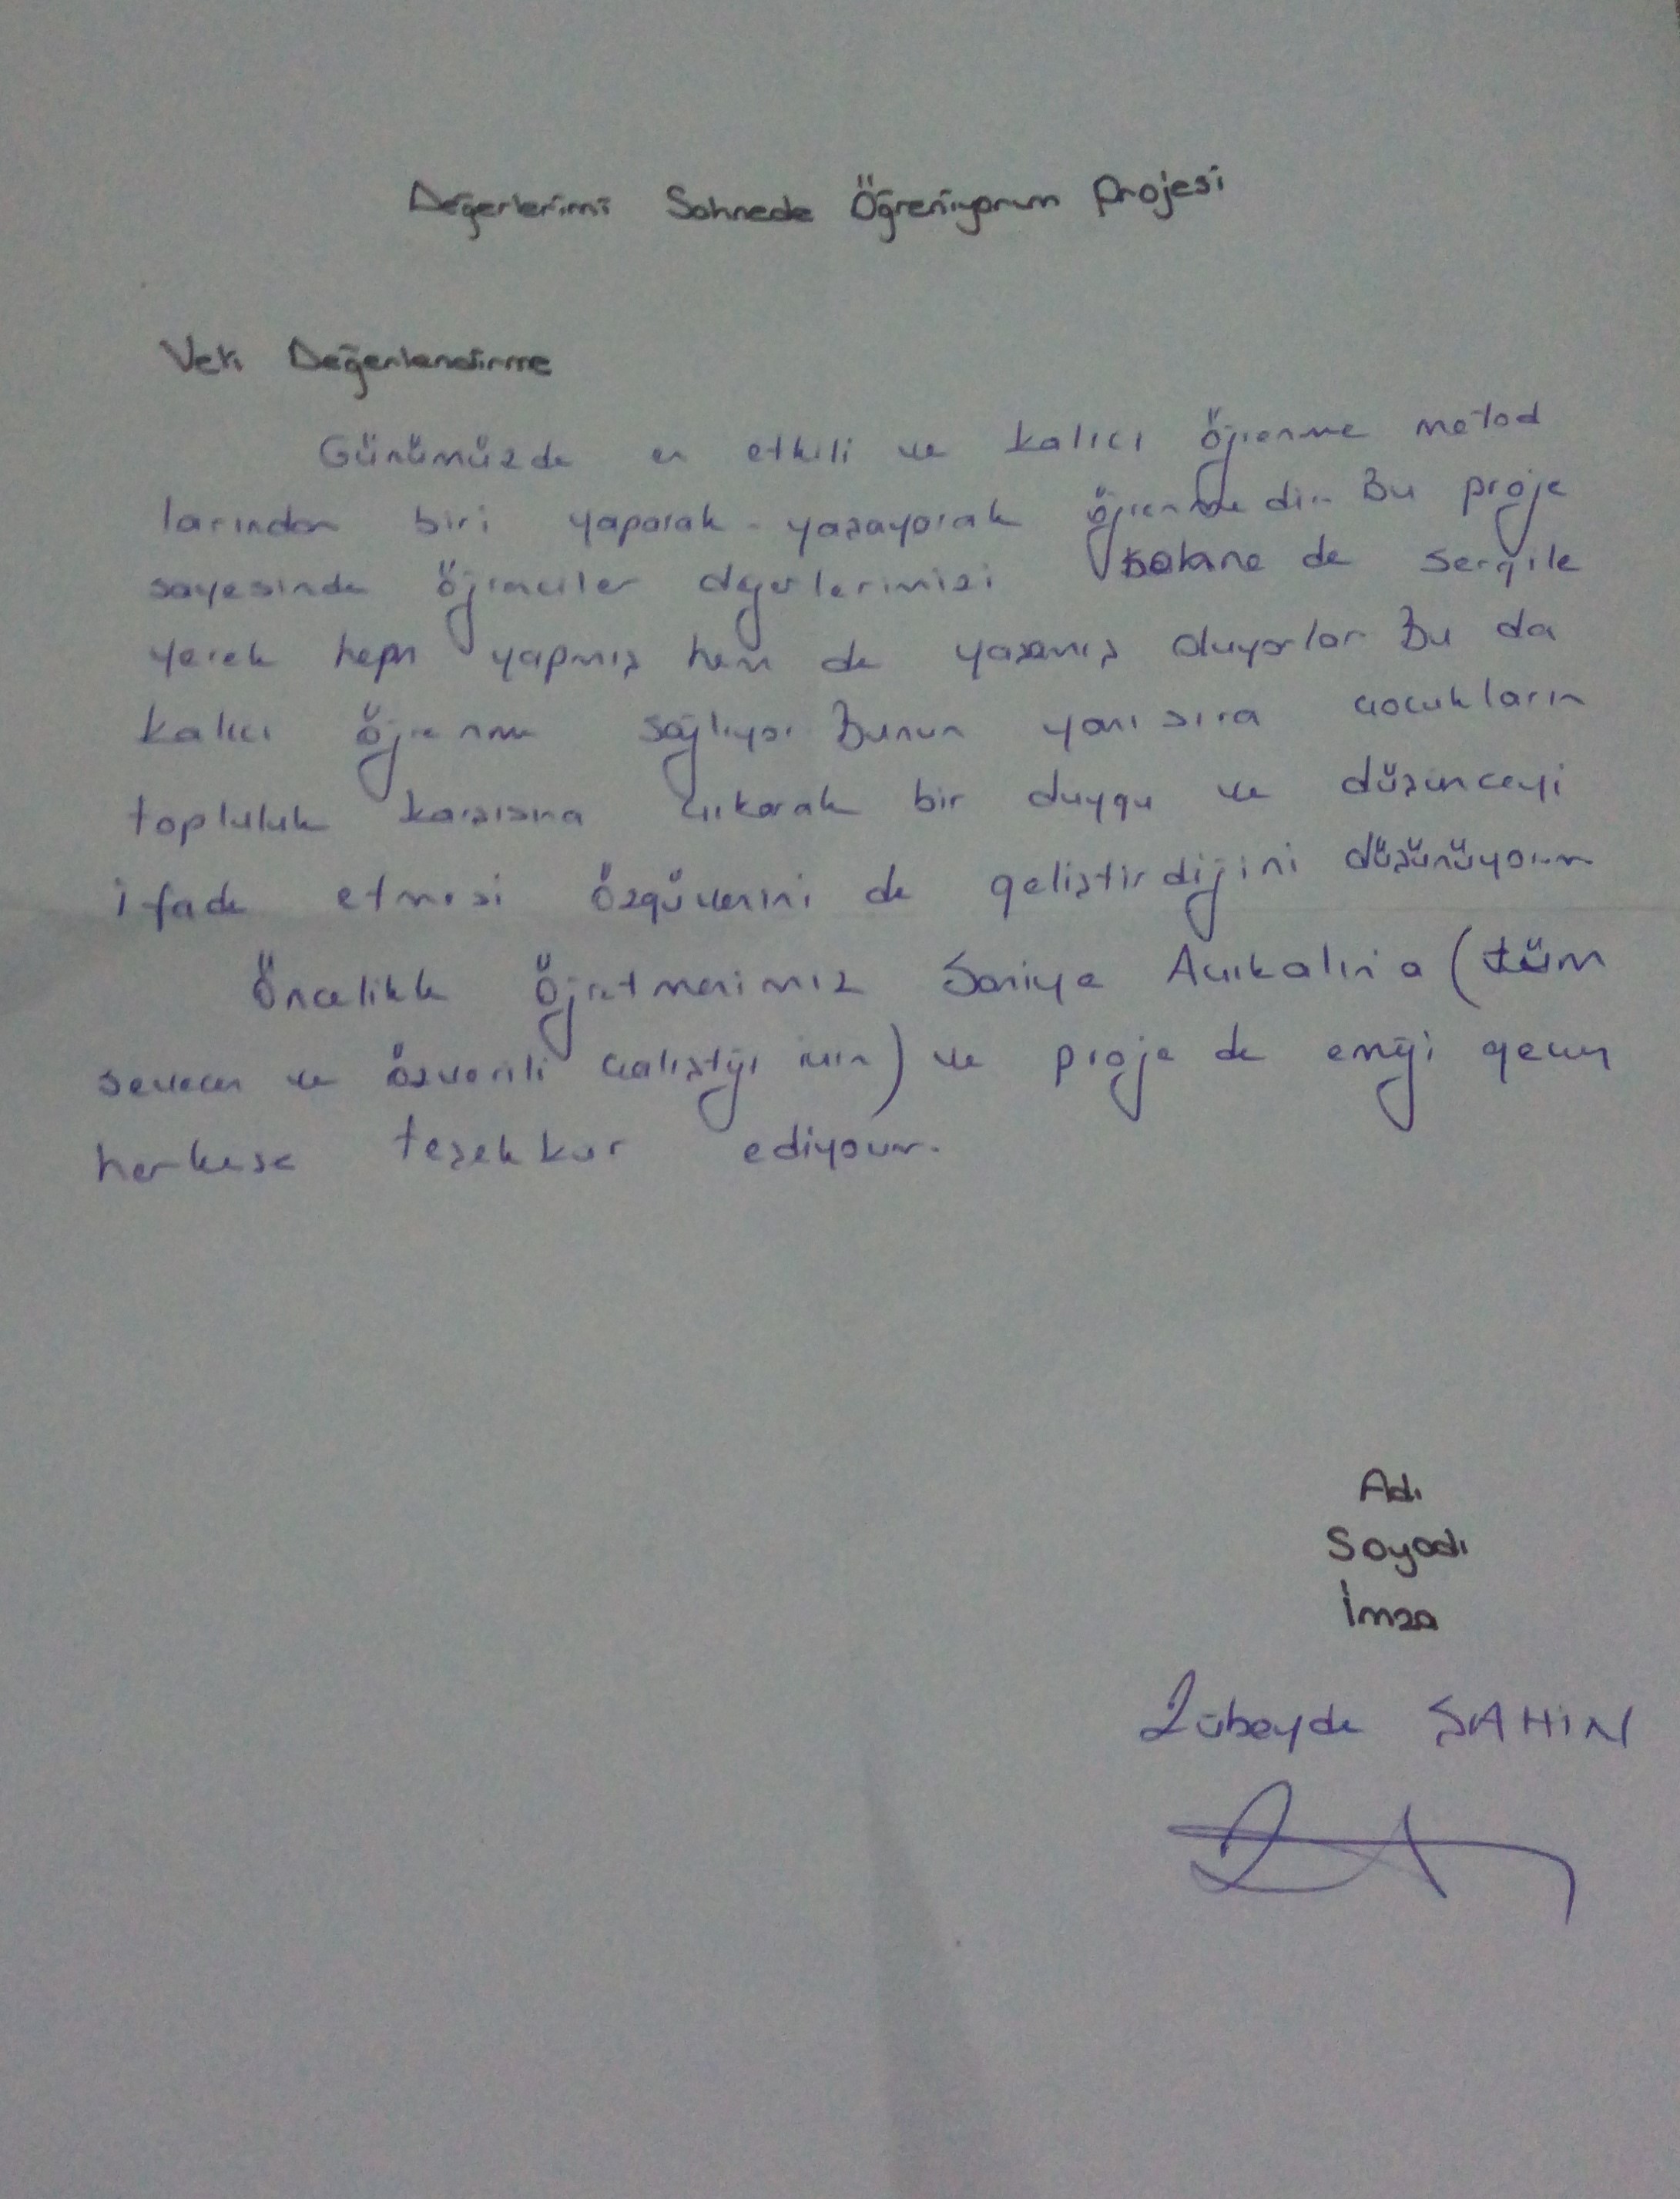 Değerlerimi Sahnede Öğreniyorum Projesi
Veli Değerlendirme
Günümüzde en etkili ve kalıcı öğrenme metod
larından biri yaparak-yaşayarak öğrenmedir. Bu proje
sayesinde öğrenciler değerlerimizi sahne de sergile
yerek hem yapmış hem de yaşamış oluyorlar Bu da
kalıcı öğrenme sağlıyor. Bunun yanı sıra çocukların
topluluk karşısına çıkarak bir duygu ve düşünceyi
ifade etmesi özgüvenini de geliştirdiğini düşünüyorum
Öncelikle öğretmenimiz Saniye Açıkalın'a (tüm
sevecen ve özverili çalıştığı için) ve proje de emeği geçen
herkese teşekkur ediyorum.
Adı
Soyadı
İmza
Zübeyde ŞAHİN